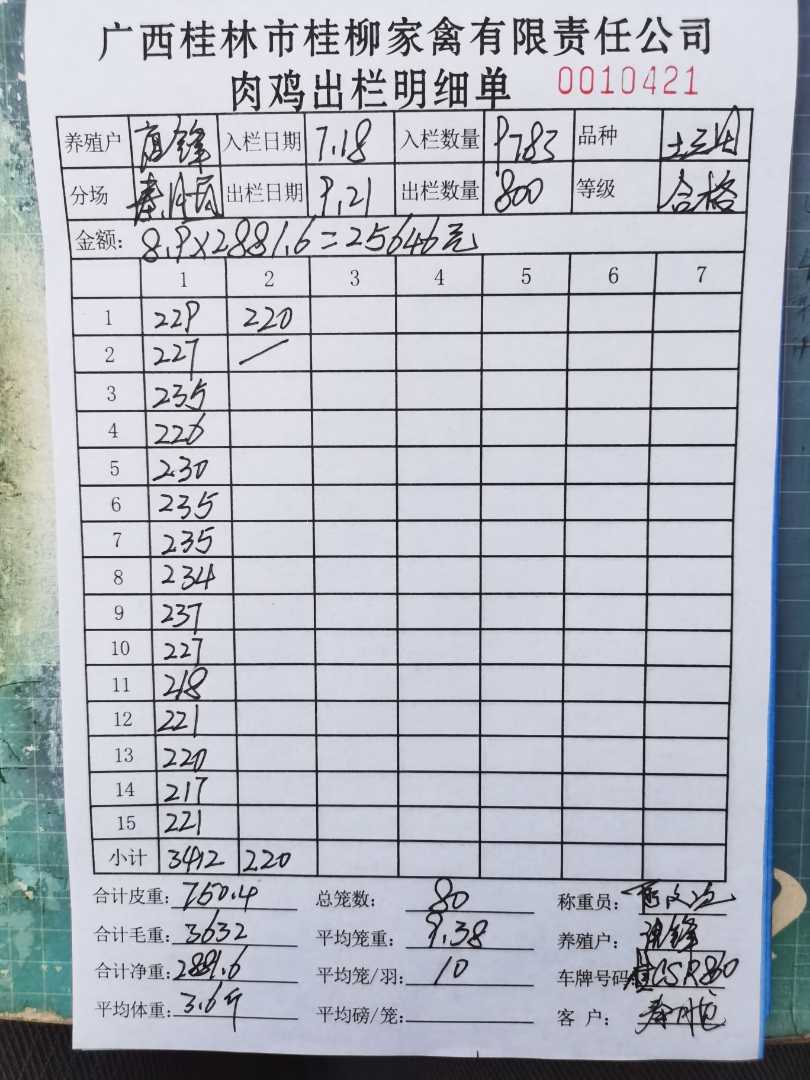 广西桂林市桂柳家禽有限责任公司
肉鸡出栏明细单 0010421
养殖户 唐锋 入栏日期 7.18 入栏数量 9783 品种
分场 秦 出栏日期 9.21 出栏数量 800 等级 合格
金额: 8.9×2881.6=25646元
1 2 3 4 5 6 7
1 229 220
2 227 /
3 235
4 226
5 230
6 235
7 235
8 234
9 237
10 227
11 218
12 221
13 220
14 217
15 221
小计 3412 220
合计皮重: 750.4 总笼数: 80 称重员:
合计毛重: 3632 平均笼重: 9.38 养殖户: 唐锋
合计净重: 2881.6 平均笼/羽: 10 车牌号码: 桂CSR860
平均体重: 3.6斤 平均磅/笼: 客 户: 秦